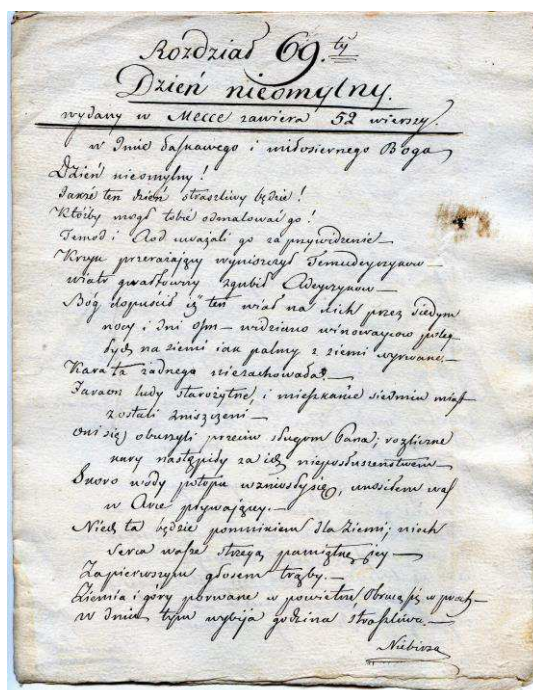 Rozdział 69.ty
Dzień nieomylny.
wydany w Mecce zawiera 52 wierszy.
w Imie łaskawego i miłosiernego Boga
Dzień nieomylny!
Jakże ten dzień straszliwy będzie!
Któżby mógł tobie odmalować go!
Temod i Aod uważali go za przywidzenie —
Krzyk przerażający wyniszczył Temudeyczyków —
wiatr gwałtowny zgubił Adeyczyków —
Bóg dopuścił iż ten wiatr na nich przez siedym
nocy i dni ośm — widziano winowayców poleg-
łych na ziemi iak palmy z ziemi wyrwane. —
Kara ta żadnego niezachowała. —
Faraon ludy starożytne, i mieszkanie siedmiu miast
zostali zniszczeni —
oni się oburzyli przeciw sługom Pana; rozliczne
kary nastąpiły za ich nieposłuszeństwem —
Skoro wody potopu wzniosły się, unosiłem was
w Arce pływaiącey. —
Niech ta będzie pomnikiem dla ziemi; niech
serca wasze strzegą pamiątkę jey —
Za pierwszym głosem trąby. —
Ziemia i góry porwane w powietrze obrócą się w proch —
w dniu tym wybija godzina straszliwa. —
Niebiosa